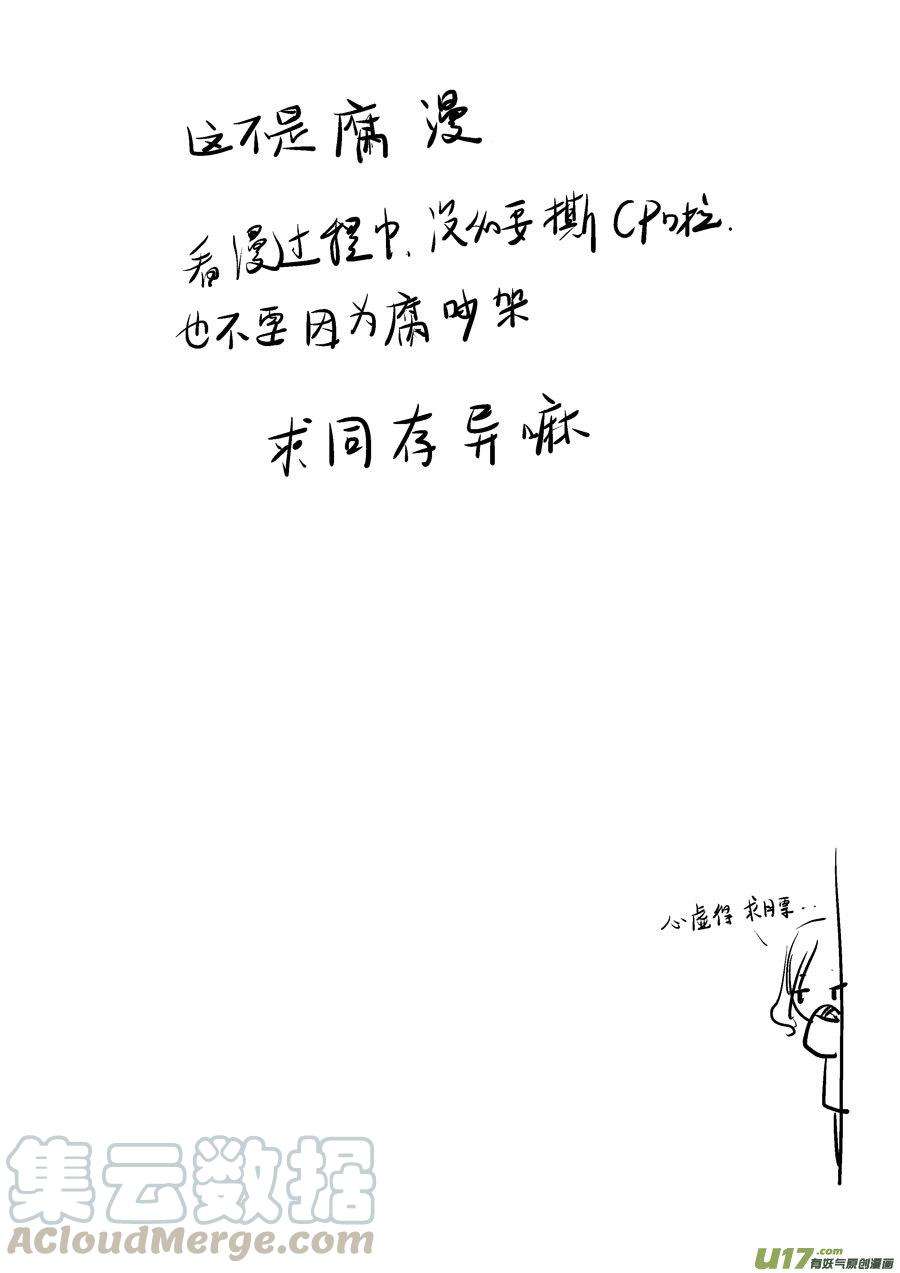 这不是腐漫
看漫过程中，没必要撕CP啦．
也不要因为腐吵架
求同存异嘛
心虚得求月票‥
集云数据
ACloudMerge.com
U17.com
有妖气原创漫画